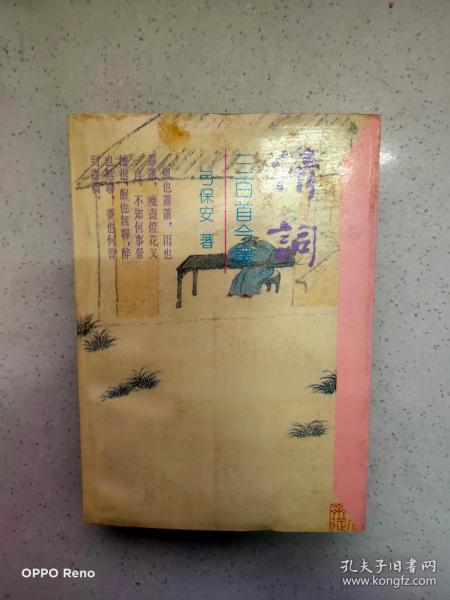 清詞
三百首今譯
弓保安 著
風也蕭蕭,雨也
蕭蕭,瘦盡燈花又
一宵。不知何事縈
懷抱,醒也無聊,醉
也無聊,夢也何曾
到謝橋。
OPPO Reno
孔夫子旧书网
www.kongfz.com